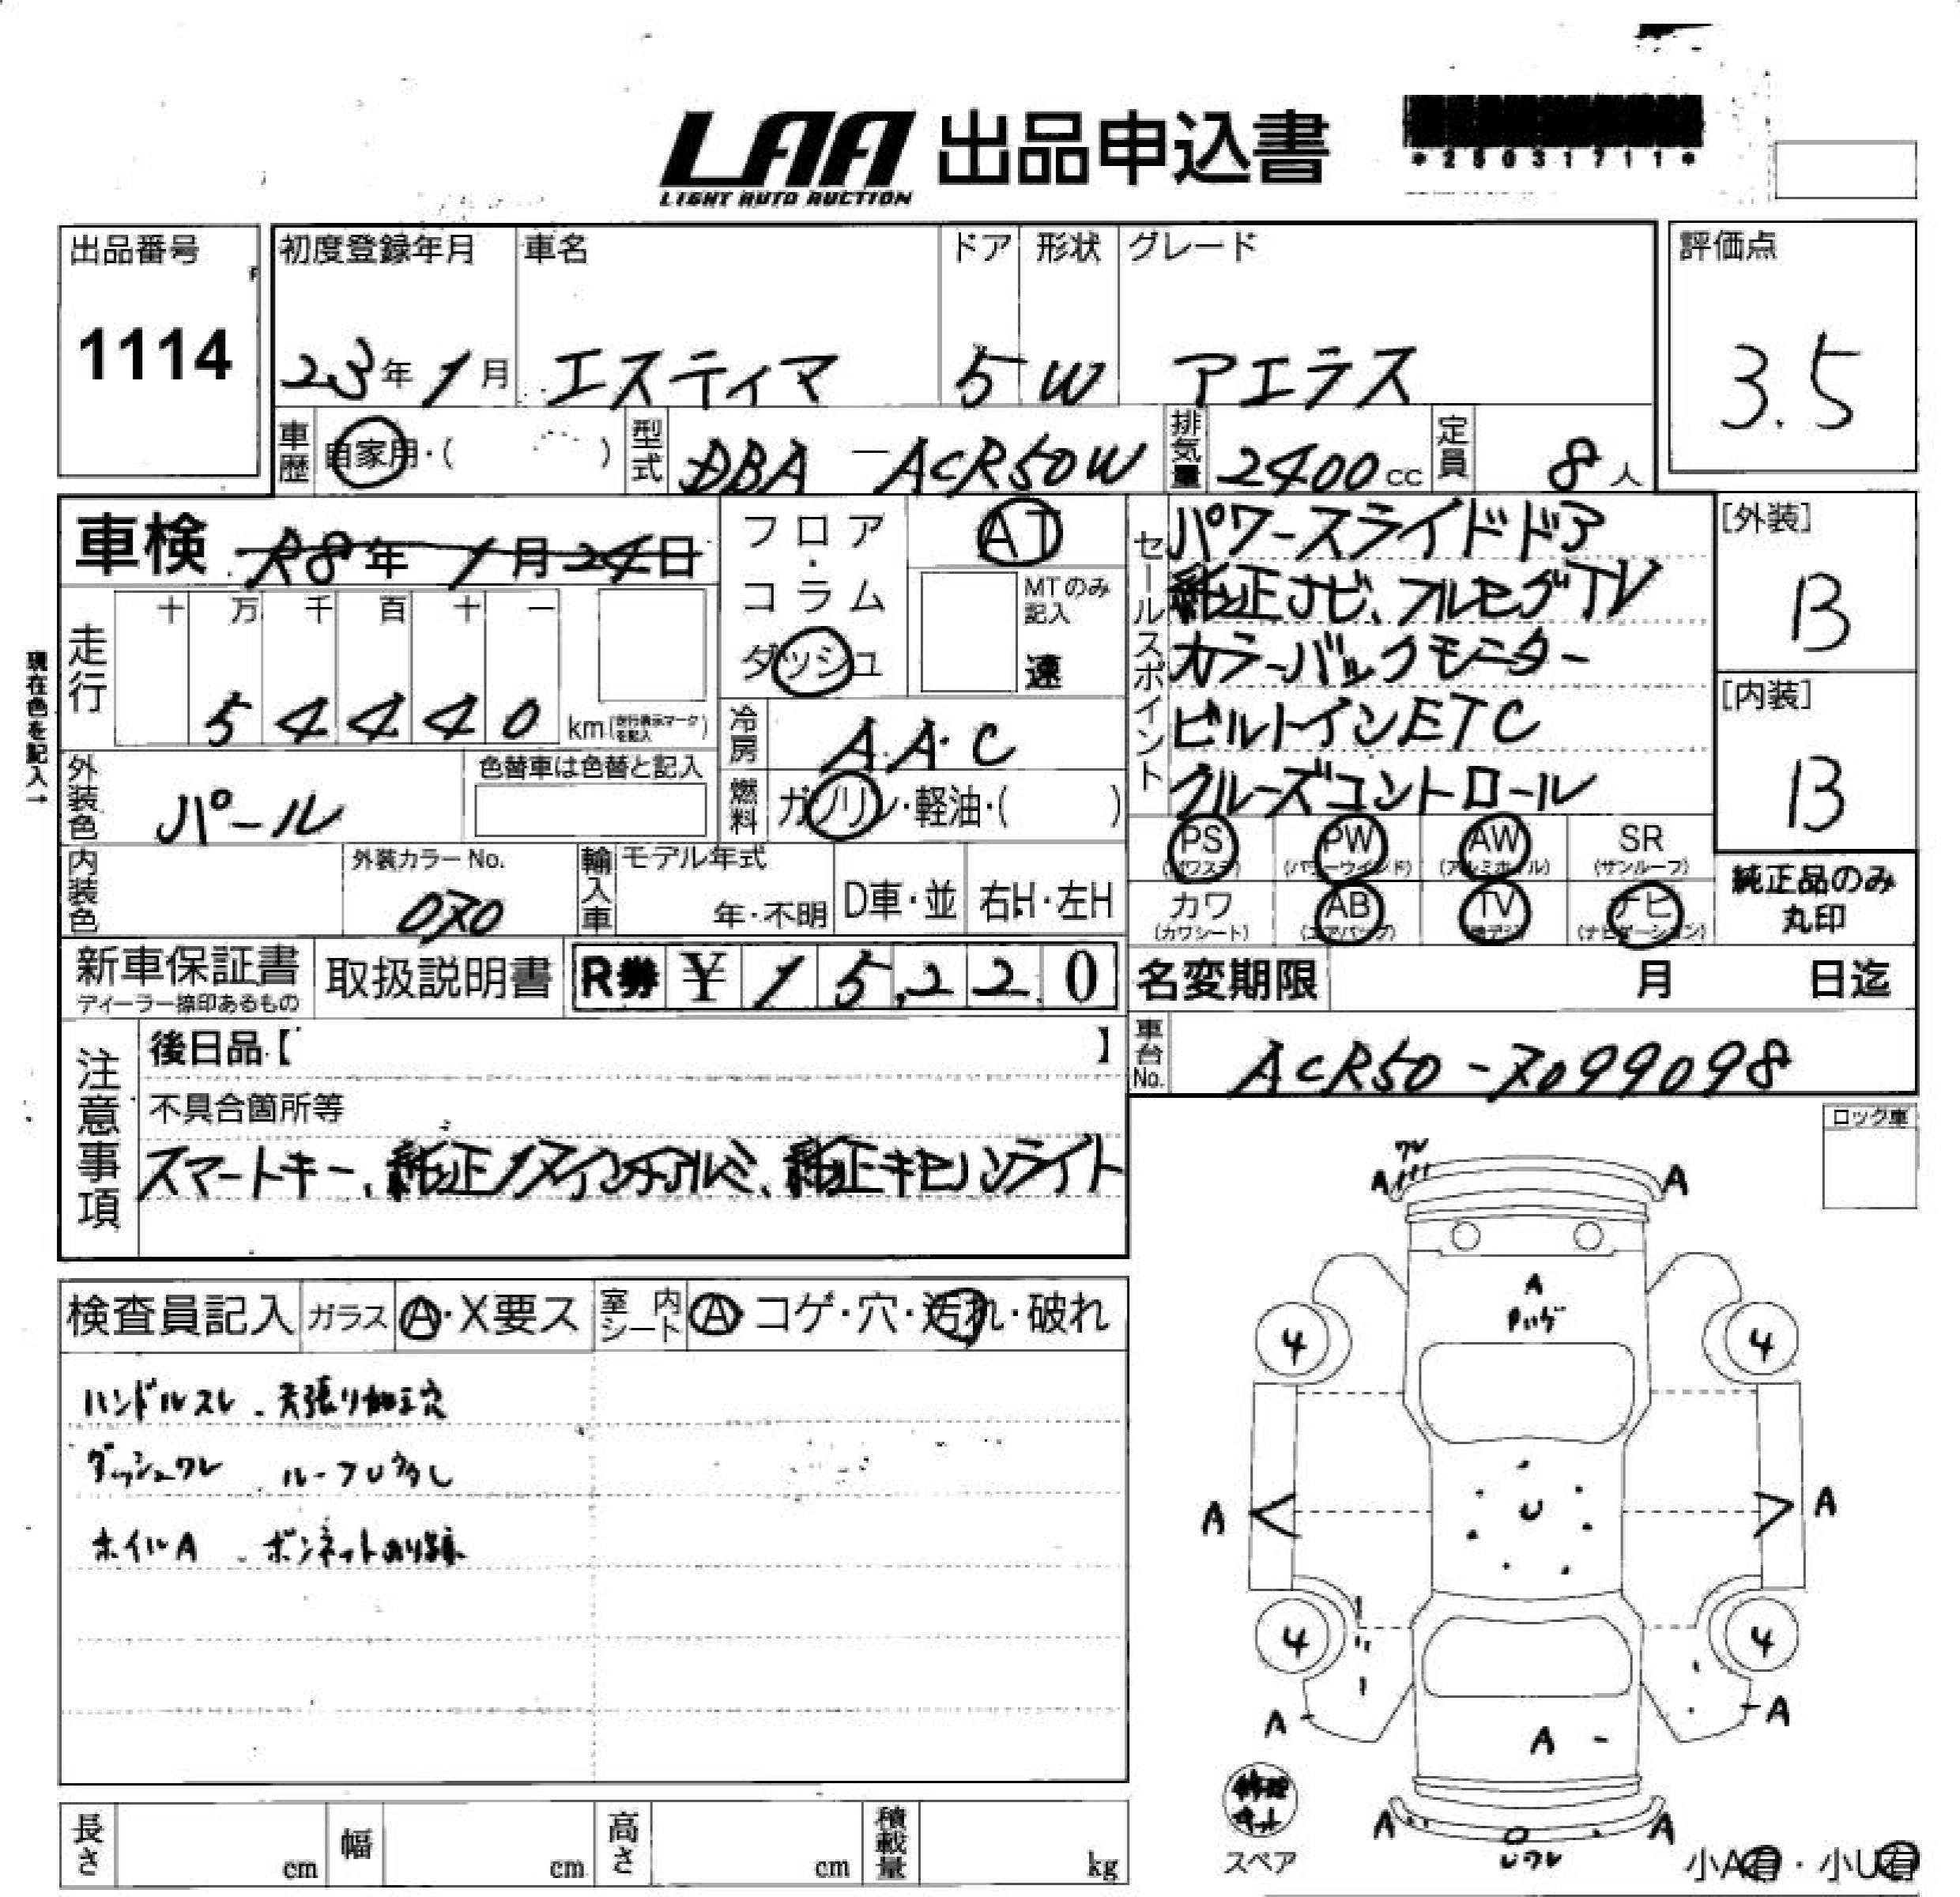 LAA 出品申込書
LIGHT AUTO AUCTION
*25031711*
出品番号
1114
初度登録年月
23年1月
車名
エスティマ
ドア
5
形状
W
グレード
アエラス
評価点
3.5
車歴
自家用・( )
型式
DBA-ACR50W
排気量
2400cc
定員
8人
車検 R8年1月24日
フロア・コラム
ダッシュ
AT
MTのみ記入
速
セールスポイント
パワースライドドア
純正ナビ、フルセグTV
カラーバックモニター
ビルトインETC
クルーズコントロール
[外装]
B
[内装]
B
現在色を記入→
走行
十 万 千 百 十 一
54440 km(走行表示マークを記入)
冷房
A.A.C
外装色
パール
色替車は色替と記入
燃料
ガソリン・軽油・( )
PS (パワステ)
PW (パワーウインド)
AW (アルミホイル)
SR (サンルーフ)
カワ (カワシート)
AB (エアバッグ)
TV
ナビ (ナビゲーション)
純正品のみ
丸印
内装色
外装カラーNo.
070
輸入車
モデル年式
年・不明
D車・並
右H・左H
新車保証書
ディーラー捺印あるもの
取扱説明書
R券 ¥15,220
名変期限 月 日迄
車台No.
ACR50-7099098
注意事項
後日品【 】
不具合箇所等
スマートキー、純正17インチアルミ、純正キセノンライト
ロック車
検査員記入
ガラス
A・X要ス
室内シート
A・コゲ・穴・汚れ・破れ
ハンドルスレ、天張り加工穴
ダッシュワレ ルーフU多し
ホイルA、ボンネット
ワレ
A A
A
4 4
A U A
4 4
A A
A
A A
Uワレ
修理キット
スペア
小A有・小U有
長さ cm
幅 cm
高さ cm
積載量 kg